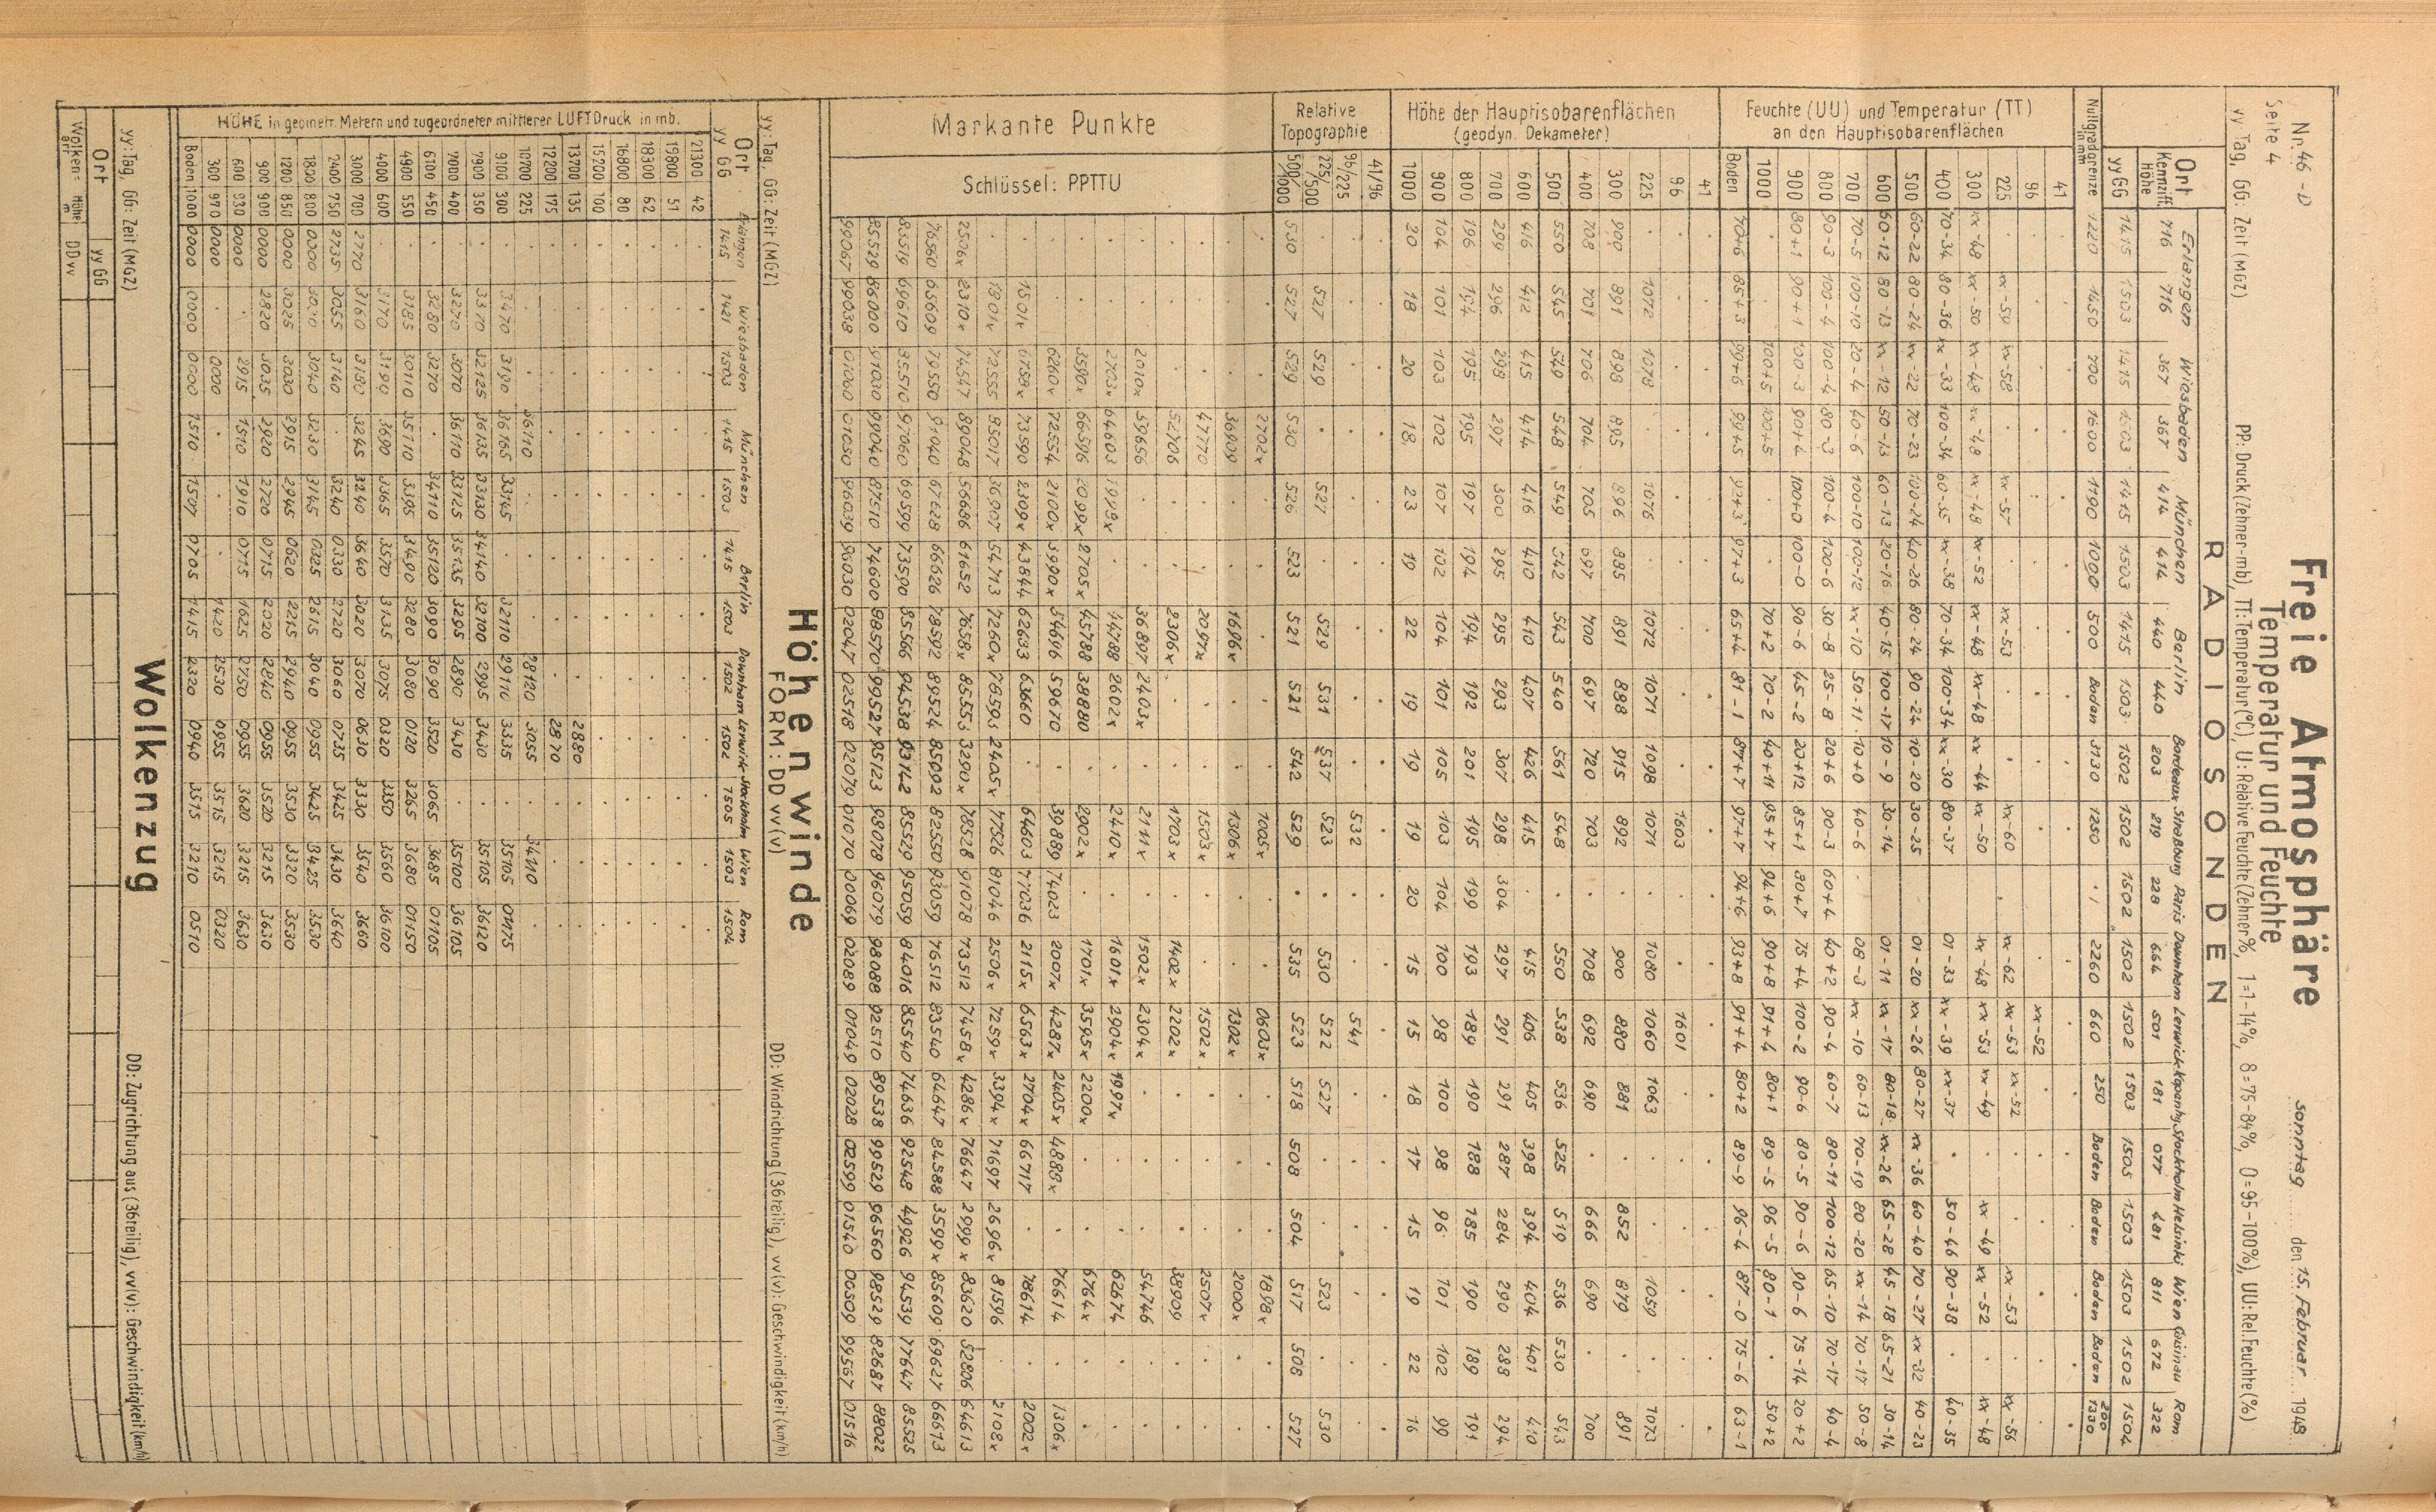 Nr. 46-D
Freie Atmosphäre
Sonntag den 15. Februar 1948
Seite 4
Temperatur und Feuchte
yy Tag, GG: Zeit (MGZ) PP: Druck (Zehner-mb), TT: Temperatur (°C), U: Relative Feuchte (Zehner %, 1=1-14%, 8=75-84%, 0=95-100%), UU: Rel. Feuchte (%)
RADIOSONDEN
Ort Erlangen Wiesbaden München Berlin Bordeaux Straßburg Paris Downham Lerwick Kopenhg Stockholm Helsinki Wien Rom
Kennziff. Höhe 716 716 367 367 414 414 440 440 203 219 228 664 501 181 077 481 811 672 322
yy GG 1415 1503 1415 1503 1415 1503 1415 1503 1502 1502 1502 1502 1502 1503 1503 1503 1503 1502 1504
Nullgradgrenze in m 1220 1450 700 1600 1190 1000 500 Boden 3130 1250 2260 660 250 Boden Boden Boden Boden 200 1330
Feuchte (UU) und Temperatur (TT) an den Hauptisobarenflächen
41
96 xx-52
225 xx-59 xx-58 xx-57 xx-53 xx-60 xx-62 xx-53 xx-52 xx-53 xx-56
300 xx-48 xx-50 xx-48 xx-48 xx-48 xx-52 xx-48 xx-48 xx-44 xx-50 xx-48 xx-53 xx-49 xx-49 xx-52 xx-48
400 70-34 80-36 xx-33 100-34 60-35 xx-38 70-34 100-34 xx-30 80-37 01-33 xx-39 xx-37 50-46 90-38 40-35
500 60-22 80-24 xx-22 70-23 100-24 40-26 80-24 90-24 10-20 30-25 01-20 xx-26 80-27 xx-36 60-40 70-27 xx-32 40-23
600 60-12 80-13 xx-12 50-13 60-13 20-16 40-15 100-17 10-9 30-14 01-11 xx-17 80-18 xx-26 65-28 45-18 65-21 30-14
700 70-5 100-10 20-4 40-6 100-10 100-12 xx-10 50-11 10+0 40-6 08-3 xx-10 60-13 70-19 80-20 xx-14 70-17 50-8
800 90-3 100-4 100-4 80-3 100-4 100-6 30-8 25-8 20+6 90-3 60+4 40+2 90-4 60-7 80-11 100-12 65-10 70-17 40-4
900 80+1 90+1 100-3 90+4 100+0 100-0 90-6 45-2 20+12 85+1 80+7 75+4 100-2 90-6 80-5 90-6 90-6 75-14 20+2
1000 100+5 100+5 70+2 70-2 40+11 95+7 94+6 90+8 91+4 80+1 89-5 96-5 80-1 50+2
Boden 70+6 85+3 99+6 99+5 92+3 97+3 65+4 81-1 87+7 97+7 94+6 93+8 91+4 80+2 89-9 96-4 87-0 75-6 63-1
Höhe der Hauptisobarenflächen (geodyn. Dekameter)
41
96 1603 1601
225 1072 1078 1076 1072 1071 1098 1071 1080 1060 1063 1059 1073
300 900 891 898 895 896 885 891 888 915 892 900 880 881 852 879 891
400 708 701 706 704 705 697 700 697 720 703 708 692 690 666 690 700
500 550 545 549 548 549 542 543 540 561 548 550 538 536 525 519 536 530 543
600 416 412 415 414 416 410 410 407 426 415 415 406 405 398 394 404 401 410
700 299 296 298 297 300 295 295 293 307 298 304 297 291 291 287 284 290 288 294
800 196 194 195 195 197 194 194 192 201 195 199 193 189 190 188 185 190 189 191
900 104 101 103 102 107 102 104 101 105 103 104 100 98 100 98 96 101 102 99
1000 20 18 20 18 23 19 22 19 19 19 20 15 15 18 17 15 19 22 16
Relative Topographie
41/96
96/225 532 541
225/500 527 529 527 529 531 537 523 530 522 527 523 530
500/1000 530 527 529 530 526 523 521 521 542 529 535 523 518 508 504 517 508 527
Markante Punkte
Schlüssel: PPTTU
2702x 1005x 0603x 1898x
36909 1696x 1306x 1302x 2000x
47770 2097x 1503x 1502x 2507x
52706 2306x 1703x 1402x 2202x 38909
2010x 59656 36897 2403x 2111x 1502x 2304x 54746
2703x 64603 1999x 44788 2602x 2410x 1601x 2904x 1997x 62674
3590x 66596 2099x 2705x 45788 38880 2902x 1701x 3595x 2200x 6764x
6260x 72554 2100x 3990x 54696 59670 39889 74023 2007x 4287x 2405x 4888x 76614 1306x
1501x 6758x 73590 2309x 43844 62633 63660 64603 77036 2115x 6563x 2704x 66717 78614 2002x
1801x 72555 85017 36907 54713 7260x 76593 2405x 47526 81046 2506x 7259x 3394x 71697 2696x 81596 2108x
2506x 2310x 74547 89048 56686 61652 7658x 8555x 3290x 78528 91078 73512 7458x 4286x 76647 2999x 83620 52806 64613
76560 65609 79550 91040 67628 66626 78592 89524 85092 82550 93059 76512 83540 64647 84588 3599x 85609 69627 66673
83519 69610 85570 97060 69599 73590 85566 94538 93142 85529 95059 84016 85540 74636 92548 49926 94539 77647 85525
85529 86000 91030 99040 87510 74600 98570 99527 95123 98079 96079 98088 92510 89538 99529 96560 98529 82687 88022
99067 99038 01060 01050 96039 95030 02047 02518 02079 01070 00069 02089 01049 02028 02599 01540 00509 99557 01516
Höhenwinde
FORM: DD vv (v)
yy: Tag, GG: Zeit (MGZ) DD: Windrichtung (36 teilig), vv(v): Geschwindigkeit (km/h)
Ort Erlangen Wiesbaden München Berlin Downham Lerwick Stockholm Wien Rom
yy GG 1415 1421 1503 1415 1503 1415 1503 1502 1502 1505 1503 1504
HÖHE in geometr. Metern und zugeordneter mittlerer LUFTDruck in mb.
21300 42
19800 51
18300 62
16800 80
15200 100
13700 135 2880
12200 175 2870
10700 225 36110 28120 3055 34110
9100 300 3470 3130 36165 33145 32110 29110 3335 35105 01175
7900 350 3370 32125 36135 33130 34140 32100 2995 3430 35105 36120
7000 400 3270 3070 36110 33125 35135 3295 2890 3430 35100 36105
6100 450 3280 3270 34110 35120 3090 3090 3520 3065 3685 01105
4900 550 3185 30110 35110 3395 3490 3280 3080 0120 3265 3680 01150
4000 600 3170 3190 3690 3365 3570 3135 3075 0320 3350 3560 36100
3000 700 2770 3160 3180 3245 3240 3640 3020 3070 0630 3330 3540 3660
2400 750 2735 3055 3140 3240 0330 2720 3060 0735 3425 3430 3640
1800 800 0000 3030 3040 3230 3145 0325 2615 3040 0955 3425 3425 3530
1200 850 0000 3025 3030 2915 2945 0620 2215 2940 0955 3530 3320 3530
900 900 0000 2820 3035 2920 2720 0715 2020 2840 0955 3520 3215 3630
600 930 0000 2915 1510 1910 0715 1625 2750 0955 3620 3215 3630
300 970 0000 0000 1420 2530 0955 3515 3215 0320
Boden 1000 0000 0000 0000 1510 1507 0705 1415 2320 0940 3515 3210 0510
Wolkenzug
yy: Tag, GG: Zeit (MGZ) DD: Zugrichtung aus (36 teilig), vv(v): Geschwindigkeit (km/h)
Ort
yy GG
Wolken= art Höhe m DD vv